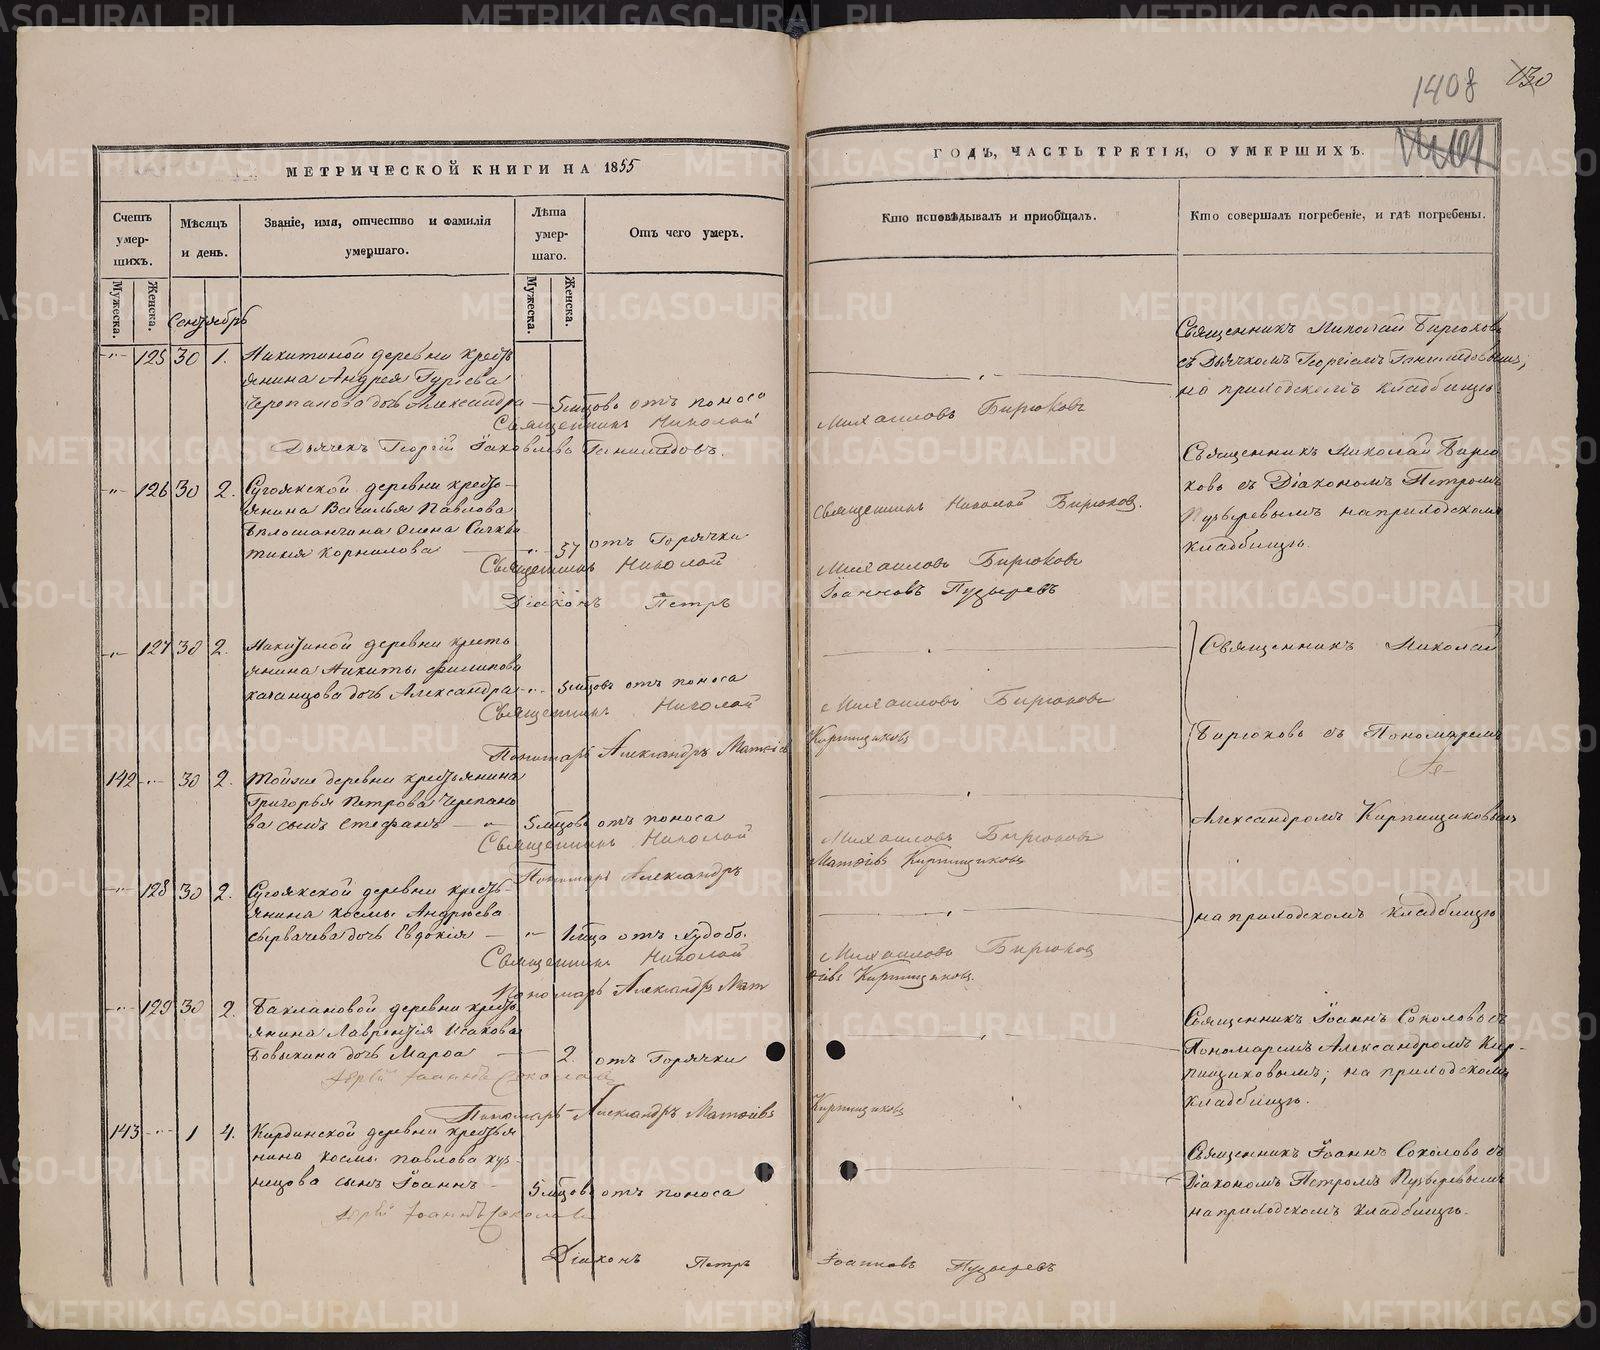 1408 130
МЕТРИЧЕСКОЙ КНИГИ НА 1855
ГОДЪ, ЧАСТЬ ТРЕТІЯ, О УМЕРШИХЪ.
Счетъ умер-шихъ.
Мѣсяцъ и день.
Званіе, имя, отчество и фамилія
умершаго.
Лѣта умер-шаго.
Отъ чего умеръ.
Кто исповѣдывалъ и пріобщалъ.
Кто совершалъ погребеніе, и гдѣ погребены.
Мужеска. Женска.
Мужеска. Женска.
Сентябрь
125 30 1. Никитиной деревни кресть
янина Андрея Гуріева
Черепанова дочь Александра 5 мѣцовъ отъ поноса
Священникъ Николай Михаиловъ Бирюковъ
Дьячекъ Георгій Іаковлевъ
Священникъ Николай Бирюковъ
съ Дьячкомъ Георгіемъ
на приходскомъ кладбищѣ
126 30 2. Сугоякской деревни кресть-
янина Василья Павлова
жена
Корнилова 57 отъ Горячки
Священникъ Николай Бирюковъ.
Священникъ Николай Михаиловъ Бирюковъ
Діаконъ Петръ Іоанновъ Пузыревъ
Священникъ Николай Бирю
ковъ съ Діакономъ Петромъ
Пузыревымъ на приходскомъ
кладбищѣ.
127 30 2. Никитиной деревни кресть
янина Никиты Филипова
дочь Александра 5 мѣцовъ отъ поноса
Священникъ Николай Михаиловъ Бирюковъ
Пономарь Александръ Матѳіевъ Кирпищиковъ
Священникъ Николай
Бирюковъ съ Пономаремъ
142 30 2. Тойже деревни крестьянина
Григорья Петрова Черепано
ва сынъ Стефанъ 5 мѣцовъ отъ поноса
Священникъ Николай Михаиловъ Бирюковъ
Пономарь Александръ Матѳіевъ Кирпищиковъ
Александромъ Кирпищиковымъ
128 30 2. Сугоякской деревни кресть-
янина Космы Андреева
Сырвачева дочь Евдокія 1 мѣца отъ худобо.
Священникъ Николай Михаиловъ Бирюковъ
Пономарь Александръ Матѳіевъ Кирпищиковъ
на приходскомъ кладбищѣ
129 30 2. Баклановой деревни кресть
янина Лаврентія Исакова
Бовыкина дочь Марѳа 2. отъ Горячки
Іерей Іоаннъ Соколовъ
Пономарь Александръ Матѳіевъ Кирпищиковъ
Священникъ Іоаннъ Соколовъ съ
Пономаремъ Александромъ Кир-
пищиковымъ; на приходскомъ
кладбищѣ.
143 1 4. Кирдинской деревни крестья
нина Космы Павлова Куз-
нецова сынъ Іоаннъ 5 мѣцовъ отъ поноса
Іерей Іоаннъ Соколовъ
Діаконъ Петръ Іоанновъ Пузыревъ
Священникъ Іоаннъ Соколовъ съ
Діакономъ Петромъ Пузыревымъ
на приходскомъ кладбищѣ.
METRIKI.GASO-URAL.RU